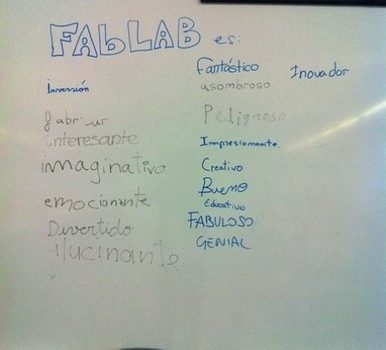 FABLAB es:
Inversión
interesante
immaginativo
emocionante
Divertido
Alucinante
Fantástico
asombroso
Peligroso
Impresionante.
Creativo
Bueno
Educativo
FABULOSO
GENIAL
Inovador